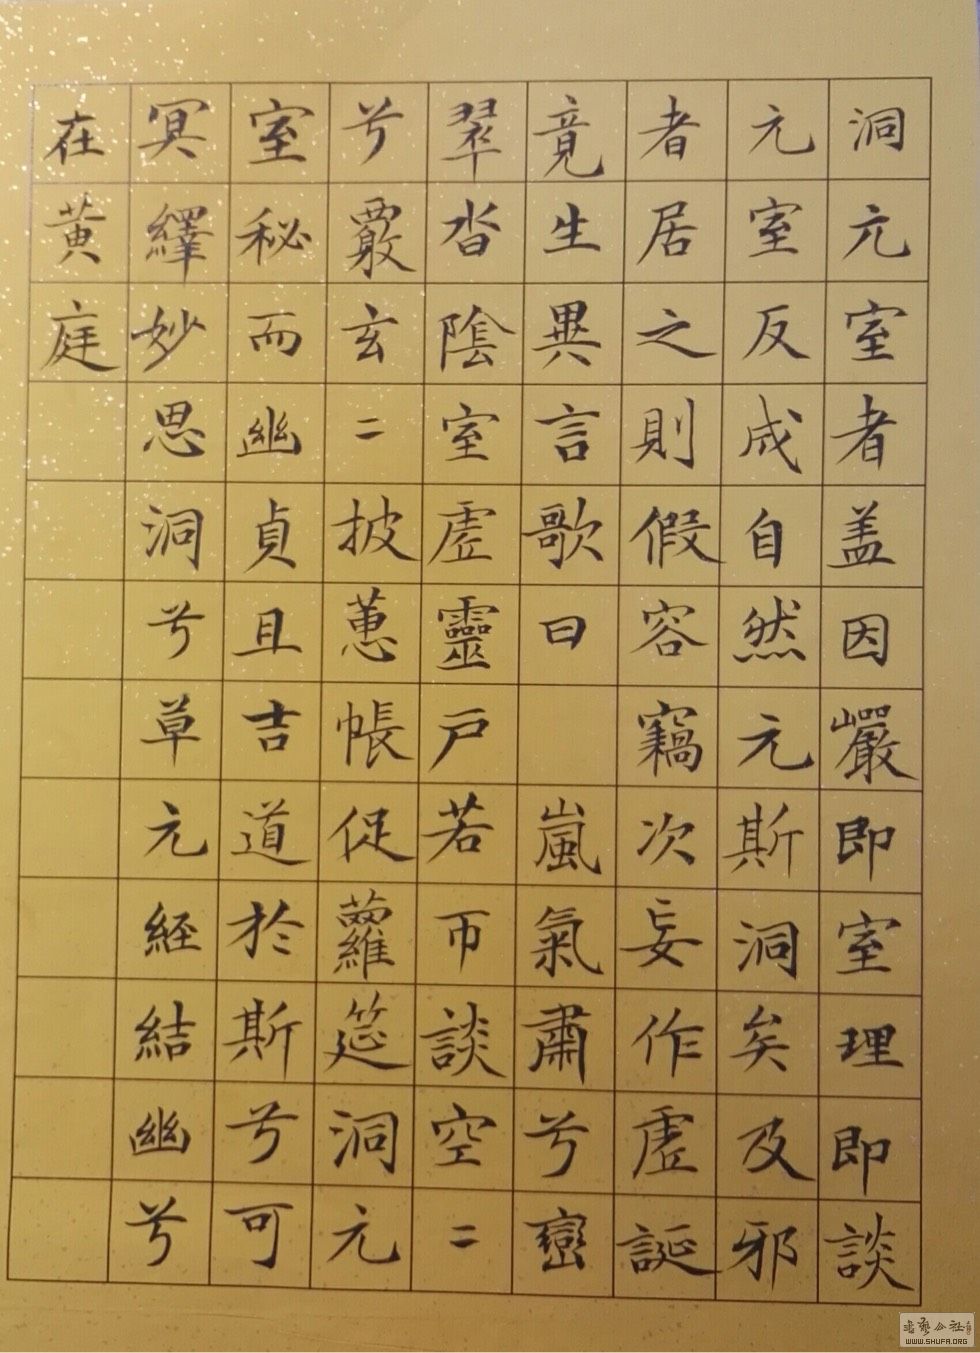 洞元室者盖因巖即室理即談
元室反成自然元斯洞矣及邪
者居之則假容竊次妄作虛誕
竟生異言歌曰 嵐氣肅兮巒
翠沓陰室虛靈戶若帀談空二
兮覈玄二披蕙帳促蘿筵洞元
室秘而幽貞且吉道於斯兮可
冥繹妙思洞兮草元經結幽兮
在黄庭
WWW.SHUFA.ORG